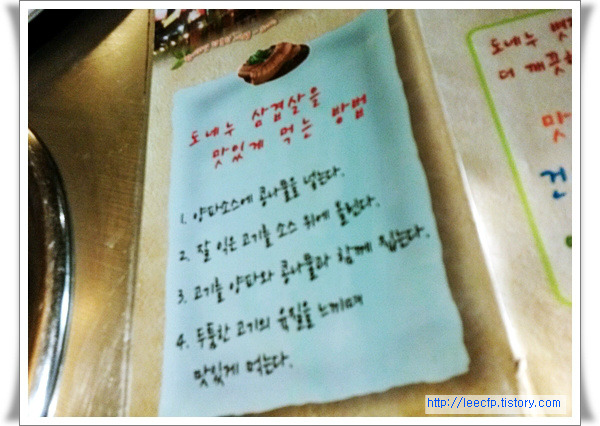 도네누 삼겹살을
맛있게 먹는 방법
1. 양파소스에 콩나물을 넣는다.
2. 잘 익은 고기를 소스 위에 올린다.
3. 고기를 양파와 콩나물과 함께 집는다.
4. 두툼한 고기의 육질을 느끼며
맛있게 먹는다.
도네누
더 깨끗
맛
http://leecfp.tistory.com